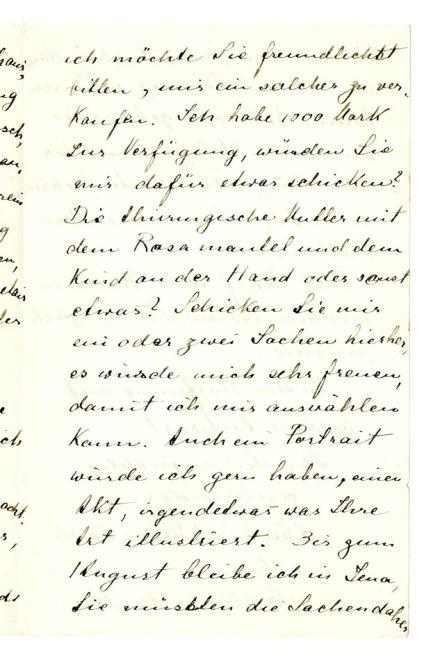 ich möchte Sie freundlichst
bitten, mir ein solches zu ver-
kaufen. Ich habe 1000 Mark
zur Verfügung, würden Sie
mir dafür etwas schicken?
Die thüringische Mutter mit
dem Rosamantel und dem
Kind an der Hand oder sonst
etwas? Schicken Sie mir
ein oder zwei Sachen hierher,
es würde mich sehr freuen,
damit ich mir auswählen
kann. Auch ein Portrait
würde ich gern haben, einen
Akt, irgendetwas was Ihre
Art illustriert. Bis zum
1 August bleibe ich in Jena,
Sie müssten die Sachen daher